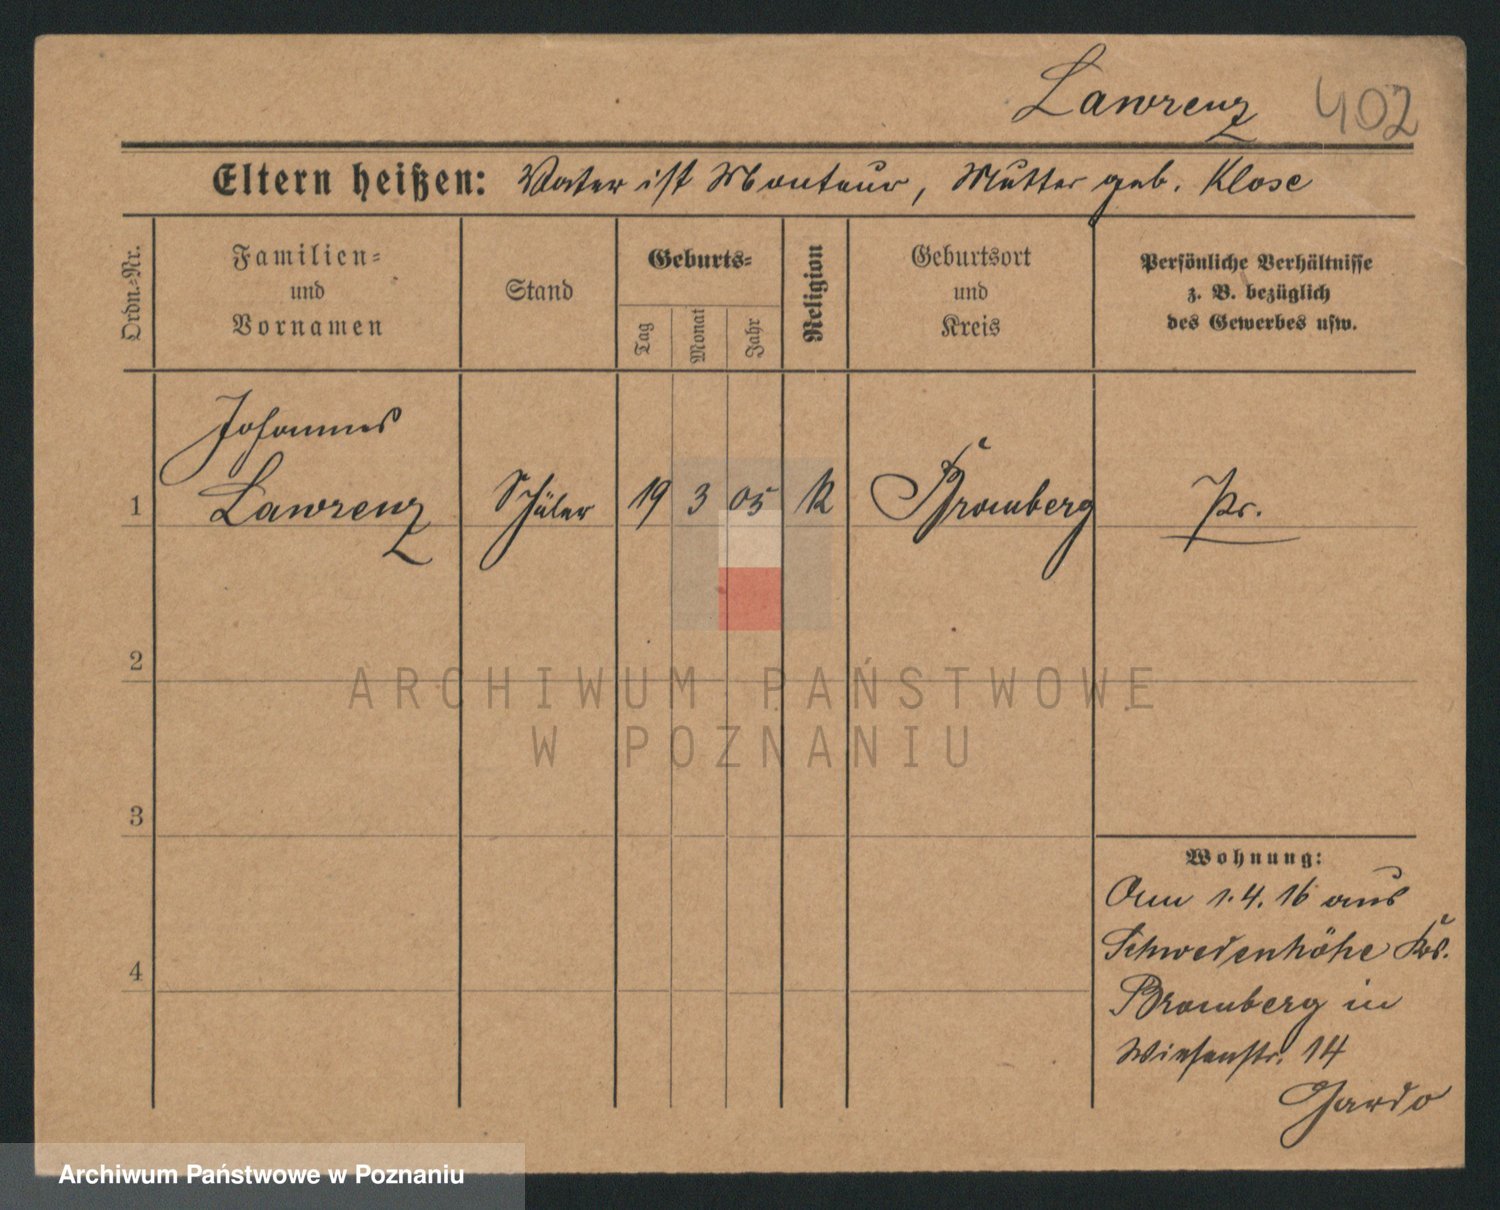 Lawrenz 402
Eltern heißen: Vater ist Monteur, Mutter geb. Klose
Ordn.-Nr.
Familien-
und
Vornamen
Stand
Geburts-
Tag
Monat
Jahr
Religion
Geburtsort
und
Kreis
Persönliche Verhältnisse
z. B. bezüglich
des Gewerbes usw.
Johannes
1 Lawrenz Schüler 19 3 05 K Bromberg Pr.
2
ARCHIWUM PAŃSTWOWE
W POZNANIU
3
Wohnung:
Am 1.4.16 aus
Schwedenhöhe Krs.
4
Bromberg in
Wiesenstr. 14
Archiwum Państwowe w Poznaniu